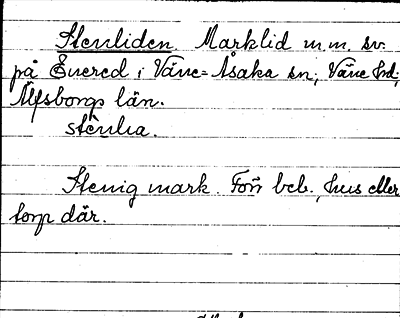 Stenliden. Marklid m.m. sv.
på Evered i Väne-Åsaka sn, Väne hd,
Älfsborgs län.
stenlia.
Stenig mark. Förr beb., hus eller
torp där.